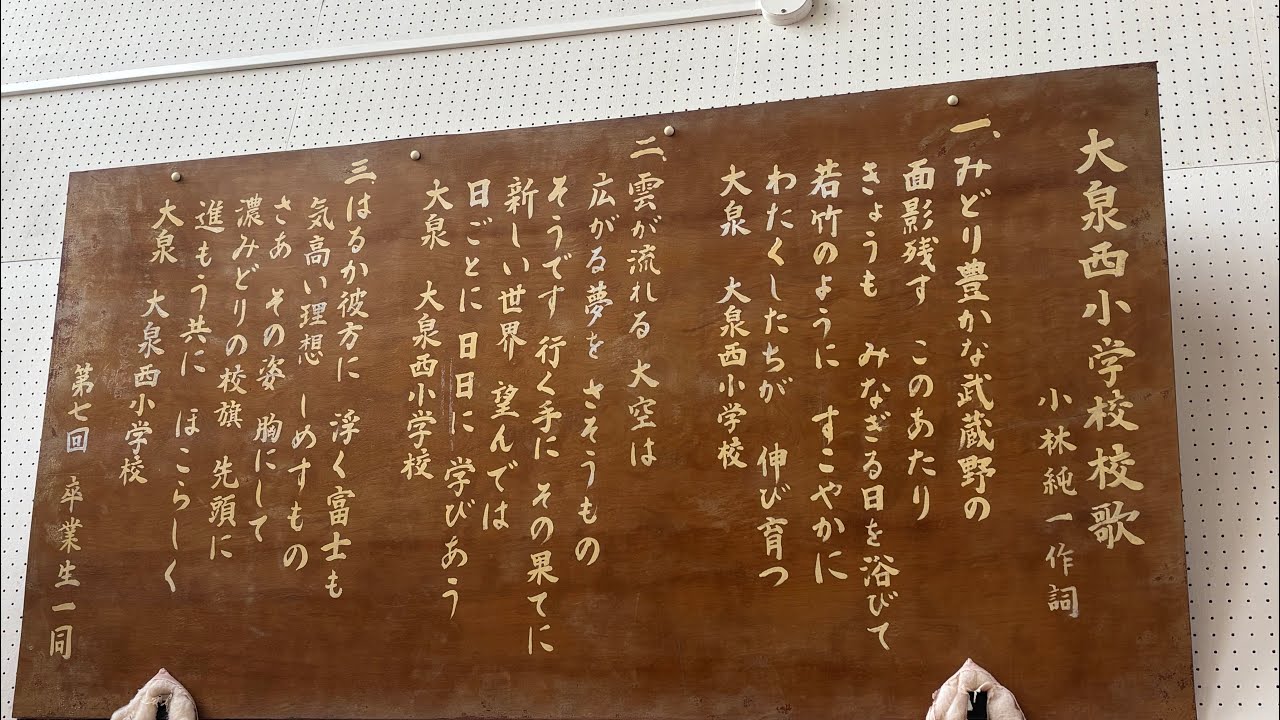 大泉西小学校校歌
小林純一作詞
一、みどり豊かな武蔵野の
面影残す このあたり
きょうも みなぎる日を浴びて
若竹のように すこやかに
わたくしたちが 伸び育つ
大泉 大泉西小学校
二、雲が流れる 大空は
広がる夢を さそうもの
そうです 行く手に その果てに
新しい世界 望んでは
日ごとに 日日に 学びあう
大泉 大泉西小学校
三、はるか彼方に 浮く富士も
気高い理想 しめすもの
さあ その姿 胸にして
濃みどりの校旗 先頭に
進もう共に ほこらしく
大泉 大泉西小学校
第七回 卒業生一同